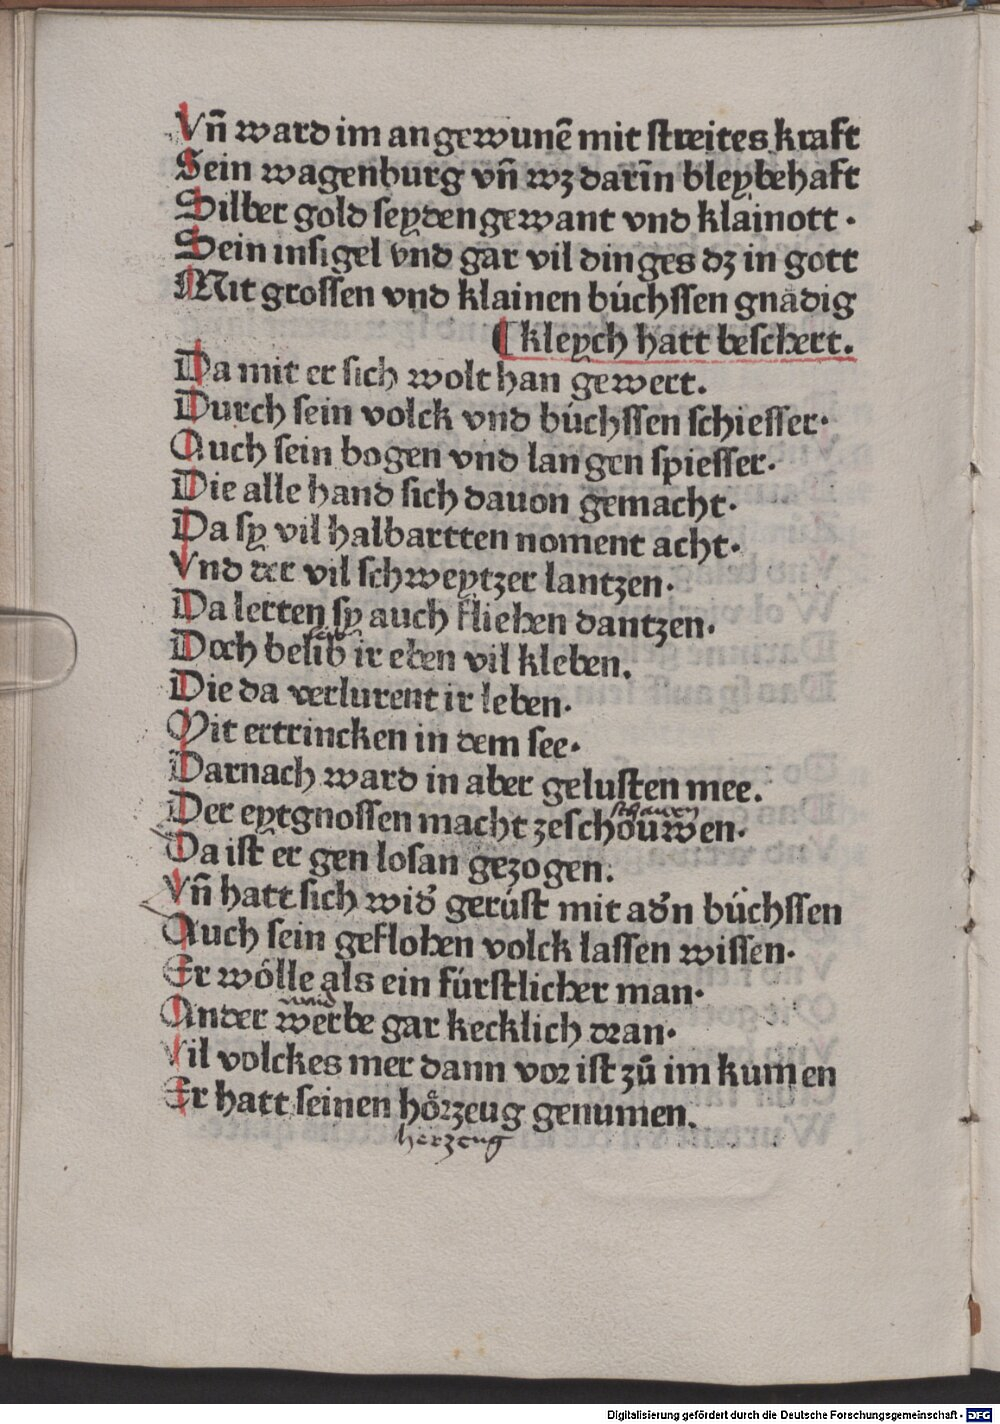 Vn̄ ward im angewunē mit streites kraft
Sein wagenburg vn̄ wz darīn bleybehaft
Silber gold seyden gewant vnd klainott ·
Sein insigel vnd gar vil dinges dz in gott
Mit grossen vnd klainen búchssen gnädig
⸿ kleych hatt beschert.
Da mit er sich wolt han gewert.
Durch sein volck vnd búchssen schiesser·
Auch sein bogen vnd langen spiesser·
Die alle hand sich dauon gemacht·
Da sy vil halbartten noment acht·
Vnd der vil schweytzer lantzen·
Da lerten sy auch fliehen dantzen·
Doch belib ir eben vil kleben.
Die da verlurent ir leben·
Mit ertrincken in dem see·
Darnach ward in aber gelusten mee.
schawen
Der eytgnossen macht zeschoůwen·
Da ist er gen losan gezogen.
Vn̄ hatt sich wid' gerúst mit ad'n búchssen
Auch sein geflohen volck lassen wissen·
Er wölle als ein fúrstlicher man·
Ander werbe gar kecklich dran·
Vil volckes mer dann vor ist zů im kumen
Er hatt seinen hörzeug genumen.
herzeug
Digitalisierung gefördert durch die Deutsche Forschungsgemeinschaft - DFG